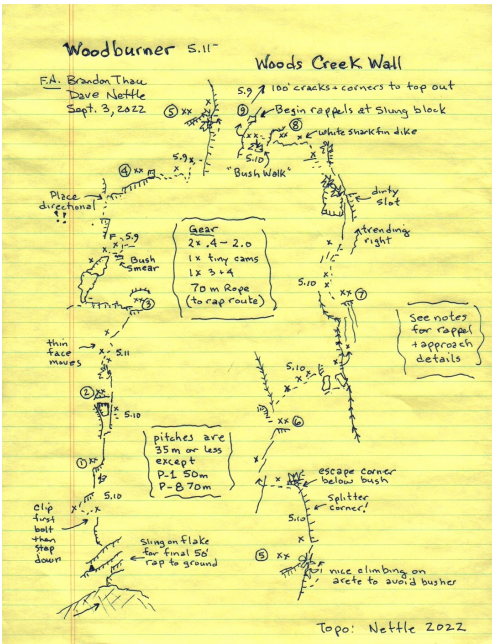 Woodburner 5.11-
Woods Creek Wall
F.A. Brandon Thau
Dave Nettle
Sept. 3, 2022
5 xx
5.9
100' cracks + corners to top out
9
Begin rappels at Slung block
8
xx
white shark fin dike
5.10
"Bush Walk"
5.9
4 xx
Place
directional
!!
dirty
slot
trending
right
Gear
2x .4 - 2.0
1x tiny cams
1x 3 + 4
70 m Rope
(to rap route)
F 5.9
Bush
Smear
3
5.10
xx 7
See notes
for rappel
+ approach
details
thin
face
moves
5.11
2 xx
5.10
5.10
xx 6
pitches are
35m or less
except
P-1 50m
P-8 70m
1 xx
5.10
escape corner
below bush
splitter
corner!
5.10
Clip
first
bolt
than
step
down
Sling on flake
for final 50'
rap to ground
5 xx
nice climbing on
arete to avoid bushes
Topo: Nettle 2022